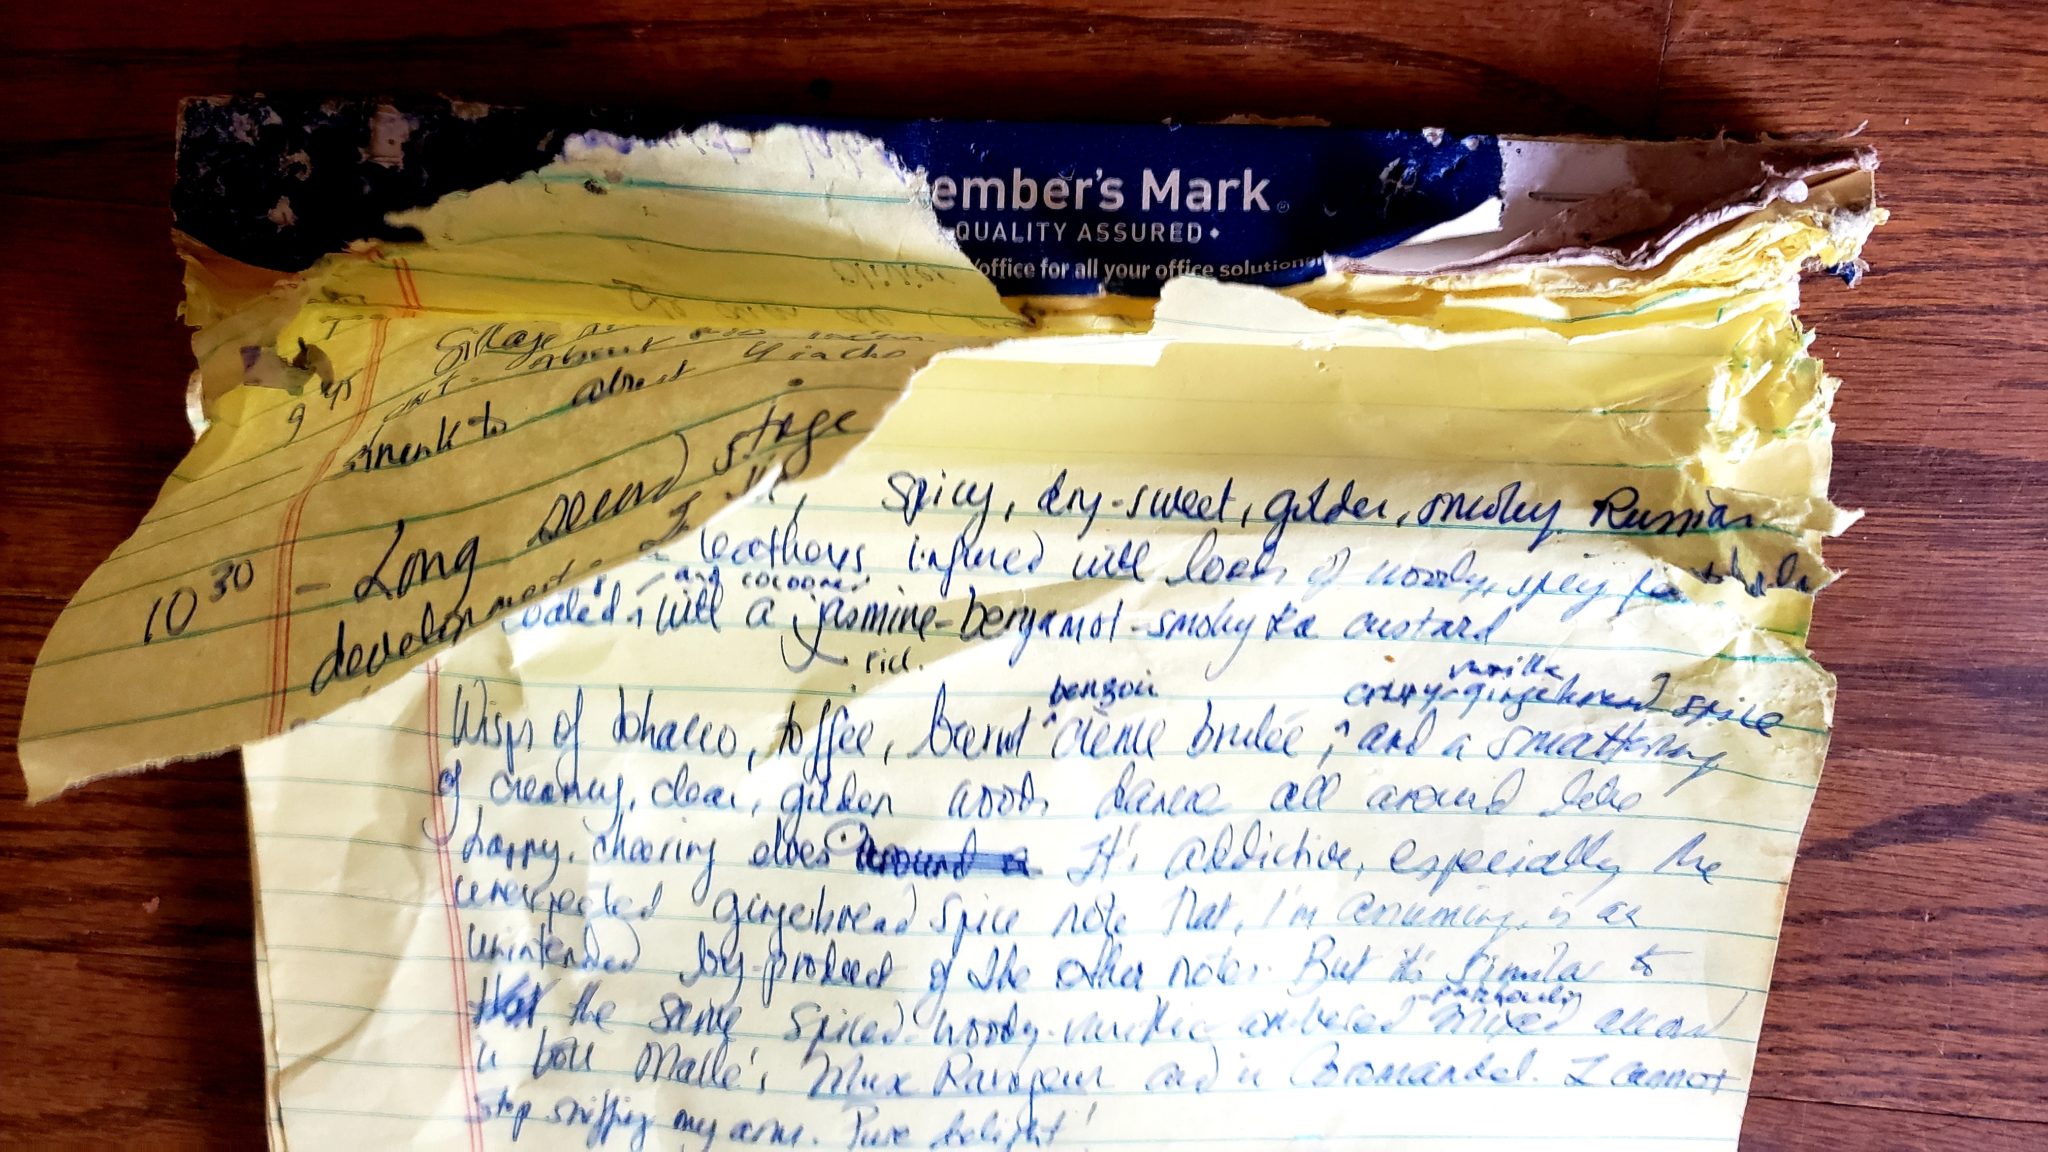 ember's Mark
QUALITY ASSURED
office for all your office solution
Sillage
about
9 45
shrank to about 4 inches
10 30 - Long second stage
development.
Spicy, dry-sweet, golden, smoky Russian
leathers infused with loads of woody, spicy
and cocooned
with a jasmine-bergamot-smoky tea custard
rich
benzoin
vanilla
creamy-gingerbread spice
Wisps of tobacco, toffee, burnt crème brulée, and a smattering
of creamy, clear, golden woods dance all around like
happy, cheering elves. It's addictive, especially the
unexpected gingerbread spice note that, I'm assuming, is an
unintended by-product of the other notes. But it's similar to
patchouli
the same spiced-woody-vanillic mixed accord
in both Malle's Musc Ravageur and in Coromandel. I cannot
stop sniffing my arm. Pure delight!